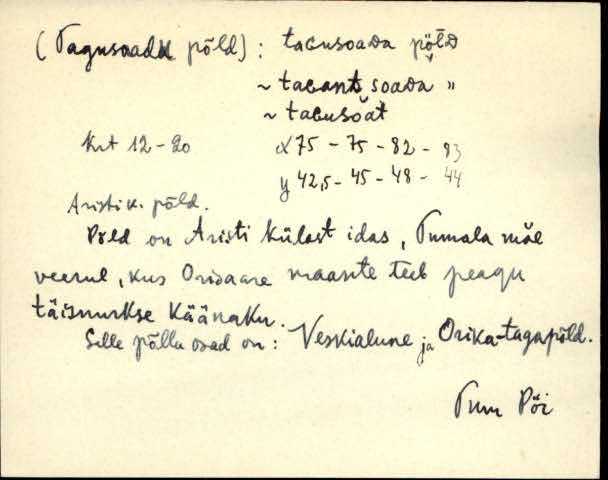 (Tagusoada põld) : taGusoaDa põlD
~ taGant soaDa "
~ taGusoat
Krt 12-20 x 75 - 75 - 82 - 83
y 42,5 - 45 - 48 - 44
Aristi k. põld.
Põld on Aristi külast idas, Tumala mäe
veerul, kus Orissaare maantee teeb peagu
täisnurkse käänaku.
Selle põllu osad on: Veskialune ja Orika-tagapõld.
Põi